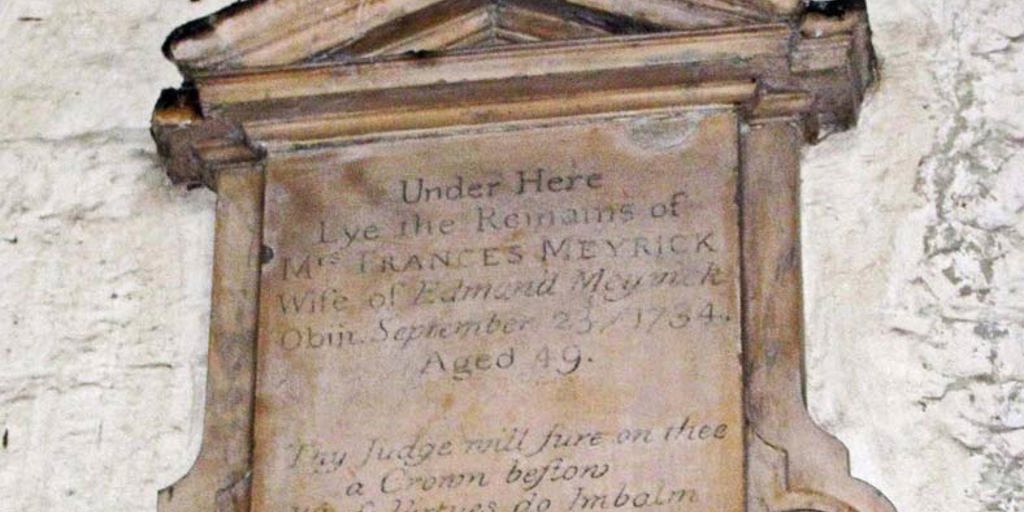 Under Here
Lye the Remains of
Mrs FRANCES MEYRICK
Wife of Edmund Meyrick
Obiit September 23, 1734.
Aged 49.
Thy Judge will ſure on thee
a Crown beſtow
Virtues do Imbalm